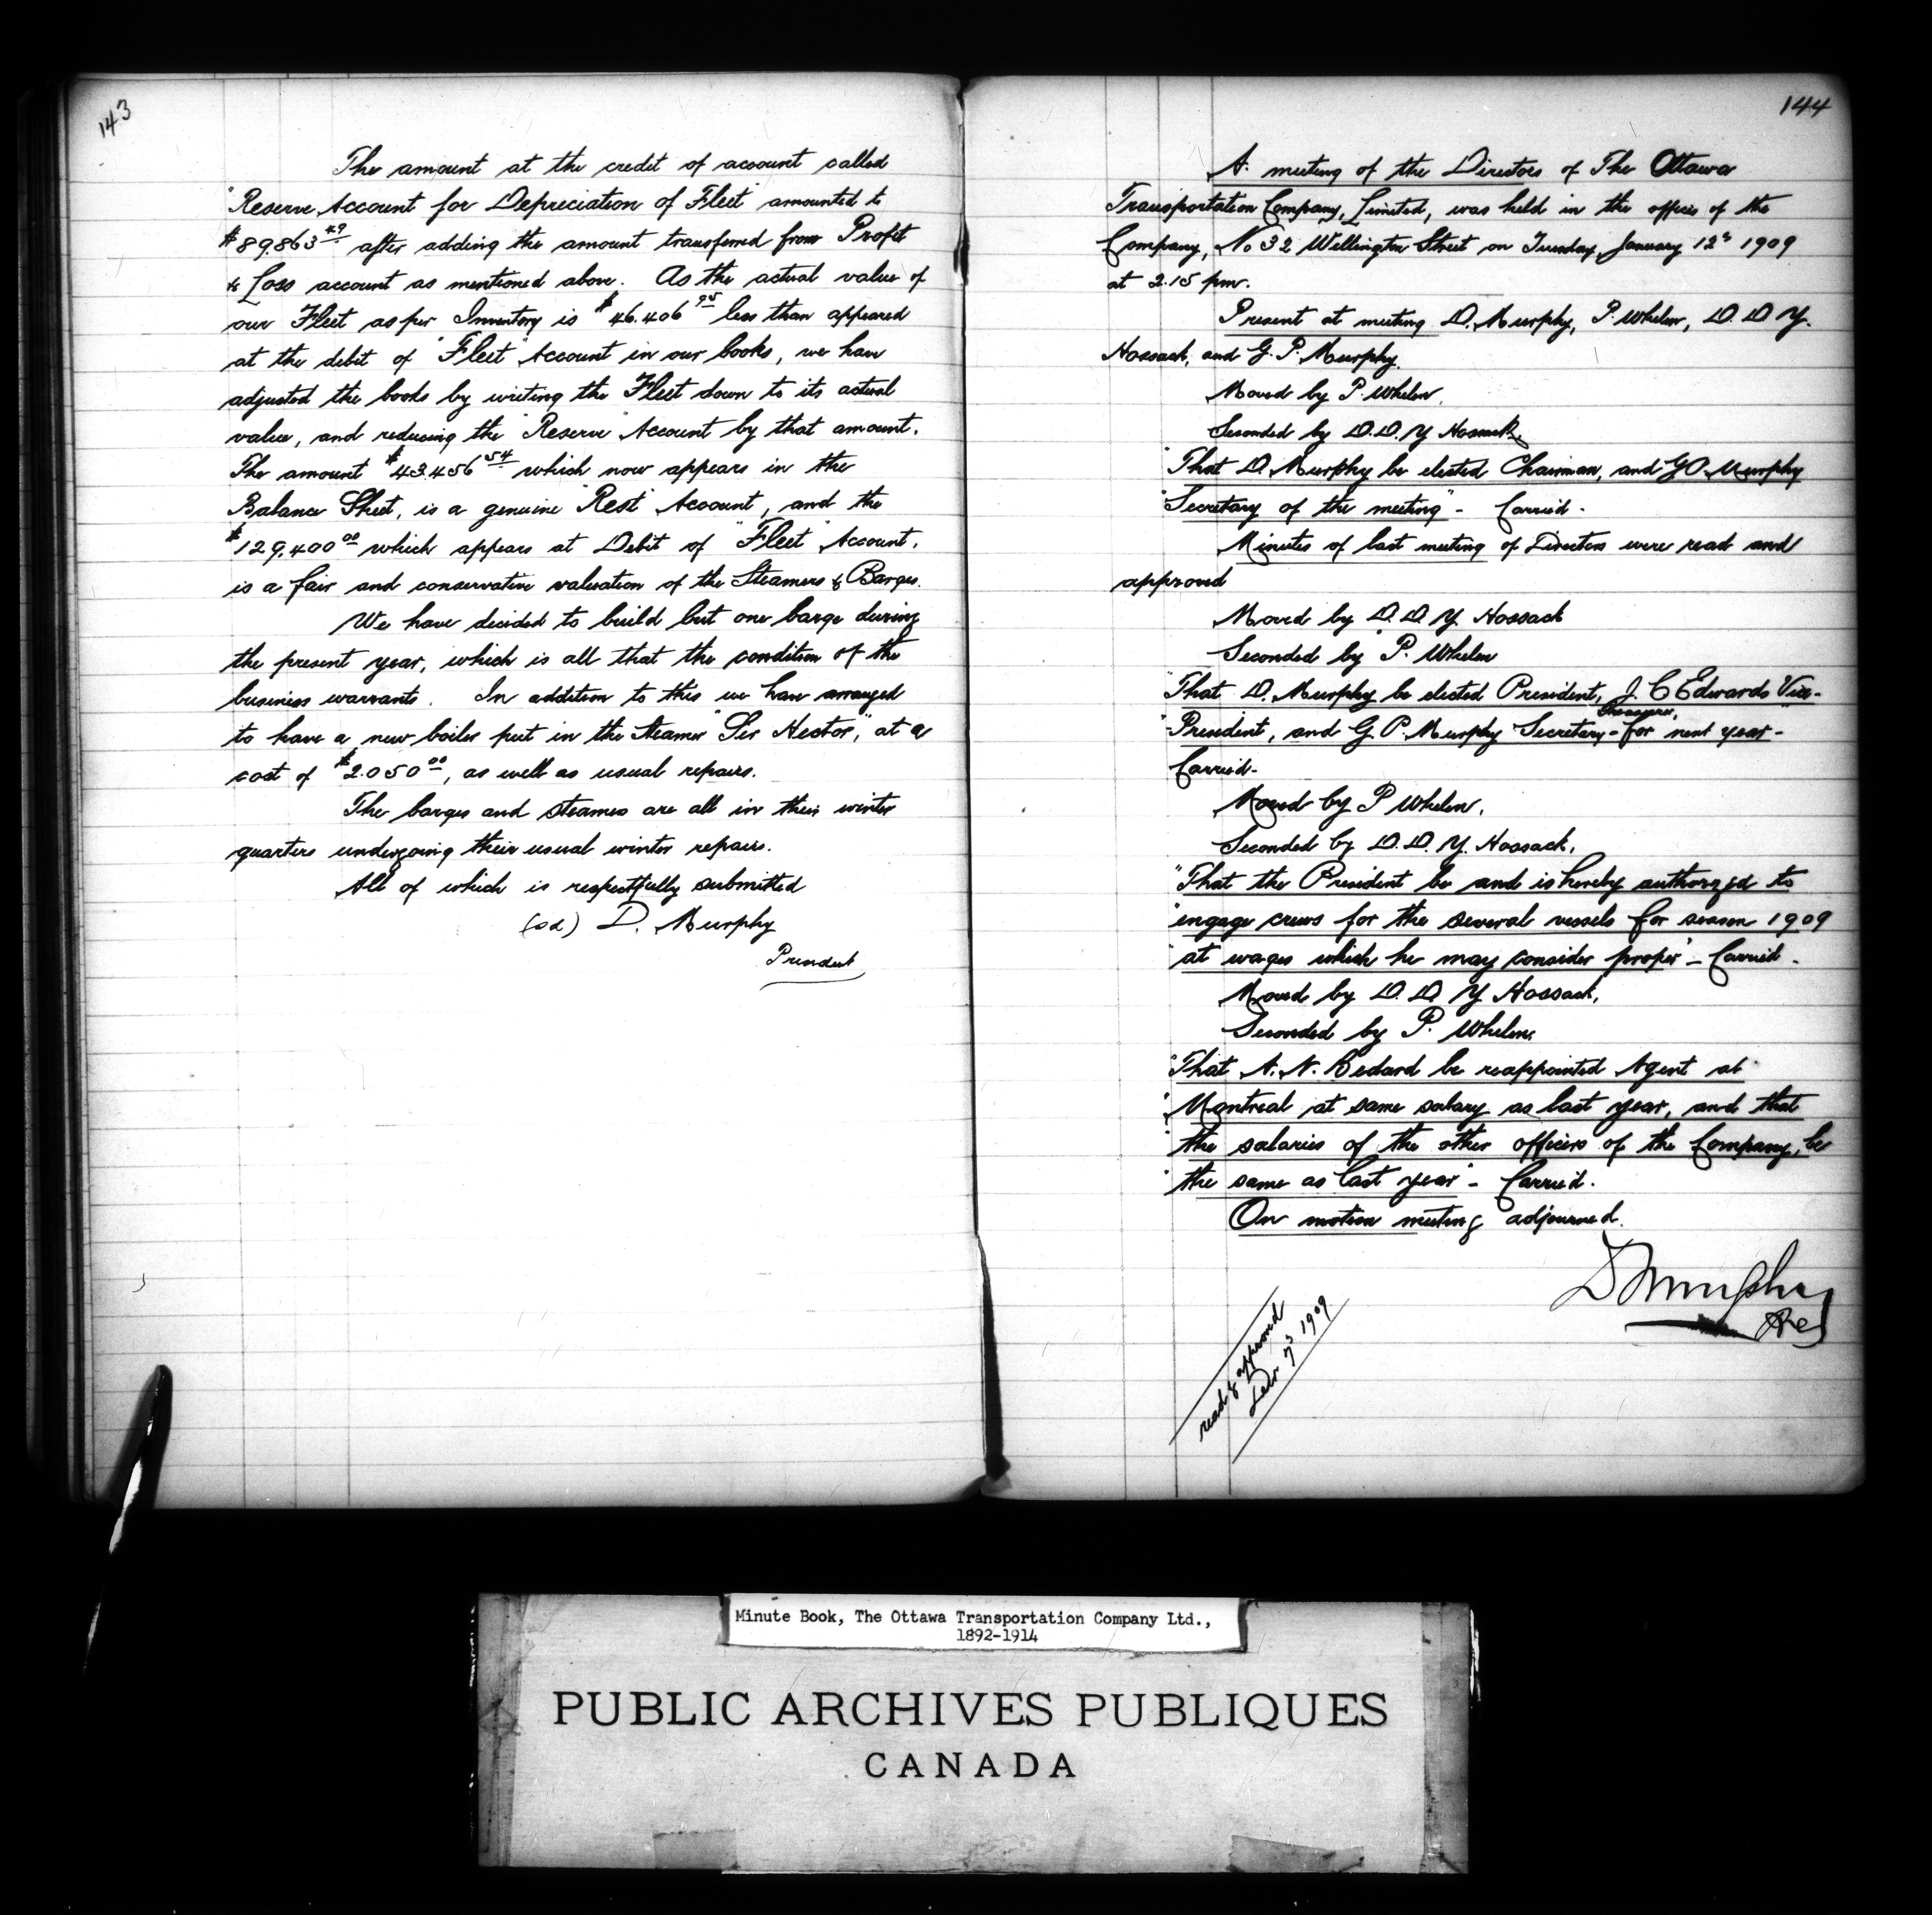 143
The amount at the credit of account called
"Reserve Account for Depreciation of Fleet" amounted to
$89.863 49 after adding the amount transferred from Profit
& Loss account as mentioned above. As the actual value of
our Fleet as per Inventory is $46.406 95 less than appeared
at the debit of "Fleet" Account in our books, we have
adjusted the books by writing the Fleet down to its actual
value, and reducing the "Reserve" Account by that amount.
The amount $43.456 54 which now appears in the
Balance Sheet, is a genuine "Rest" Account, and the
$129,400 00 which appears at Debit of "Fleet" Account,
is a fair and conservative valuation of the Steamers & Barges.
We have decided to build but one barge during
the present year, which is all that the condition of the
business warrants. In addition to this we have arranged
to have a new boiler put in the Steamer "Sir Hector", at a
cost of $2.050 00, as well as usual repairs.
The barges and steamers are all in their winter
quarters undergoing their usual winter repairs.
All of which is respectfully submitted
(sd) D. Murphy
President
144
A meeting of the Directors of The Ottawa
Transportation Company, Limited, was held in the offices of the
Company, No 32 Wellington Street on Tuesday, January 12th 1909
at 2.15 pm.
Present at meeting D. Murphy, P. Whelen, D. D. Y.
Hossack, and G. P. Murphy.
Moved by P. Whelen,
Seconded by D. D. Y Hossack,
"That D. Murphy be elected Chairman, and G P. Murphy
"Secretary of the meeting" - Carried -
Minutes of last meeting of Directors were read and
approved
Moved by D. D. Y Hossack
Seconded by P. Whelen
"That D. Murphy be elected President, J. C Edwards Vice-
"President, and G. P. Murphy Secretary-Treasurer, for next year" -
Carried -
Moved by P Whelen,
Seconded by D. D. Y. Hossack,
"That the President be and is hereby authorized to
"engage crews for the several vessels for season 1909
"at wages which he may consider proper" - Carried -
Moved by D. D. Y Hossack,
Seconded by P. Whelen,
"That A. N. Bedard be reappointed Agent at
"Montreal at same salary as last year, and that
"the salaries of the other officers of the Company, be
"the same as last year" - Carried.
On motion meeting adjourned.
D Murphy
Pres
read & approved
1909
Minute Book, The Ottawa Transportation Company Ltd.,
1892-1914
PUBLIC ARCHIVES PUBLIQUES
CANADA